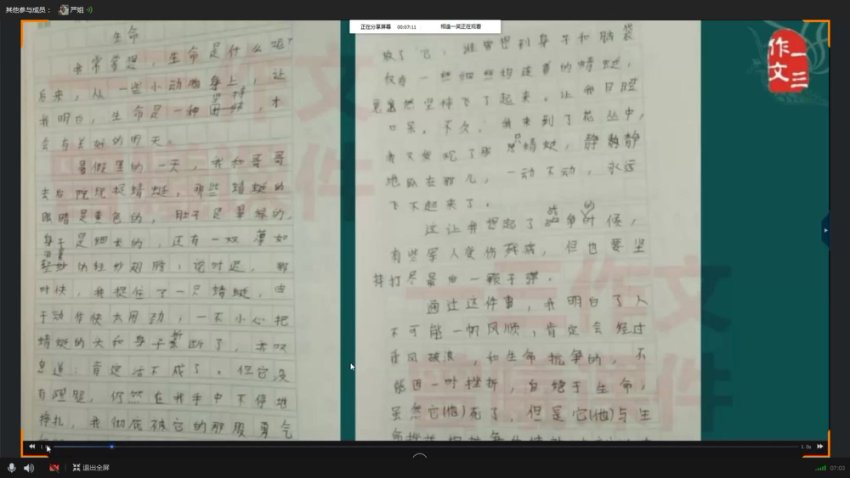 其他参与成员：
严姐
正在分享屏幕 00:07:11 相逢一笑正在观看
一三作文
生命
我常常想，生命是什么呢？
后来，从一些小动物身上，让
我明白，生命是一种坚持，才
会与美好的明天。
暑假里的一天，我和哥哥
去后院捉蜻蜓，那些蜻蜓的
眼睛是黄色的，肚子是草绿的，
身子是细长的，还有一双薄如
的红纱翅膀，说时迟，那
时快，我捉住了一只蜻蜓，由
于动作快太用劲，一不小心把
蜻蜓的头和身子断了，我叹
息道：肯定活不成了。但它没
有理睬，仍然在我手中不停地
挣扎，我彻底被它的那股勇气
放了它，谁曾想到身子和脑袋
仅有一些细丝构连着的蜻蜓，
竟然坚持飞了起来。让我目瞪
口呆。不久，我来到了花丛中，
我又发现了那只蜻蜓，静静
地趴在那儿，一动不动，永远
飞不起来了。
这让我想起了战争的时候，
有些军人受伤残疾，但也要坚
持打尽最后一颗子弹。
通过这件事，我明白了人
不可能一帆风顺，肯定会经过
乘风破浪，和生命抗争的，不
能因一时挫折，自绝于生命，
虽然它(他)死了，但是它(他)与生
退出全屏
07:03